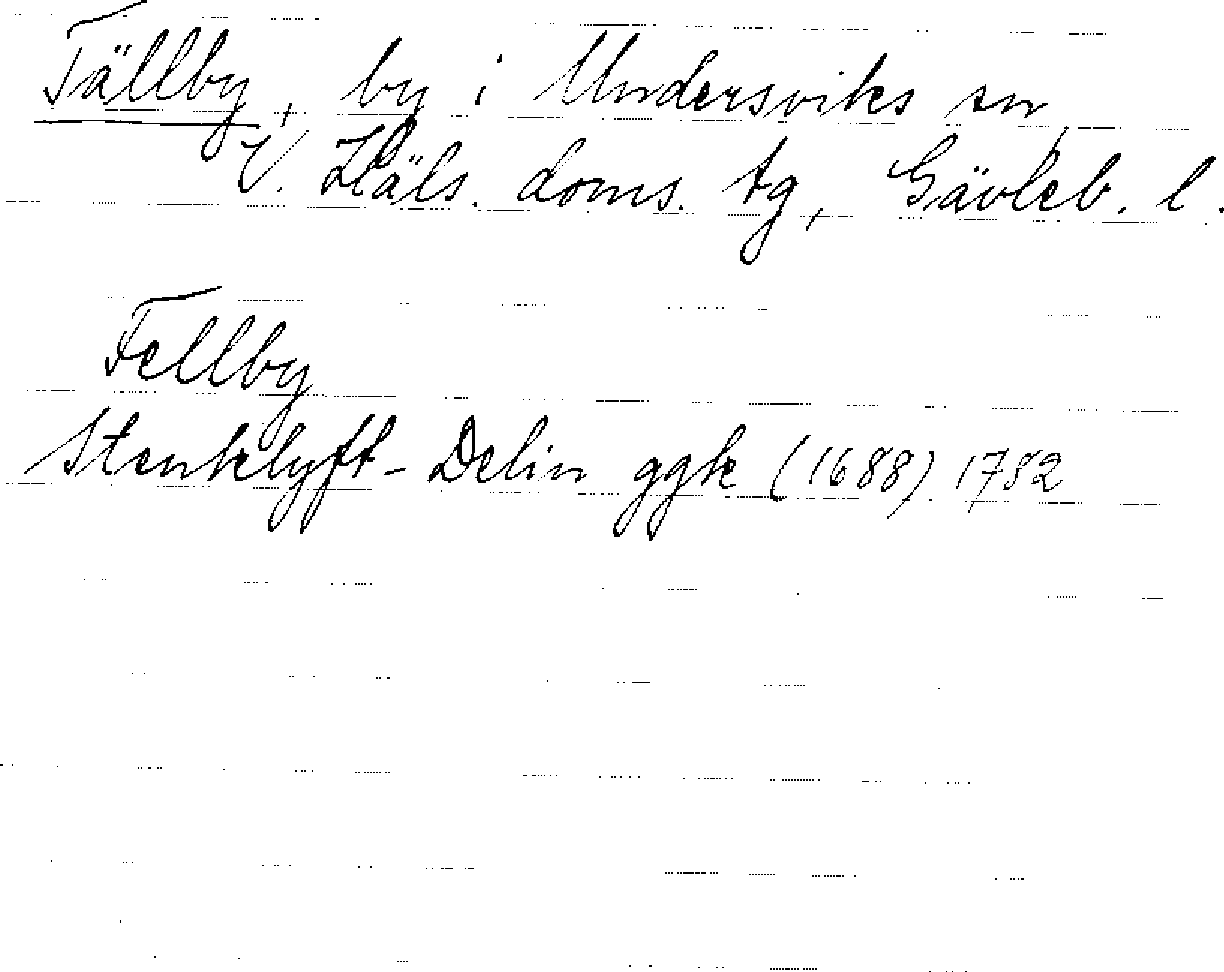 Fällby, by i Undersviks sn,
V. Häls. doms. tg, Gävleb. l.
Fellby
Stenklyft-Delin ggk (1688) 1782